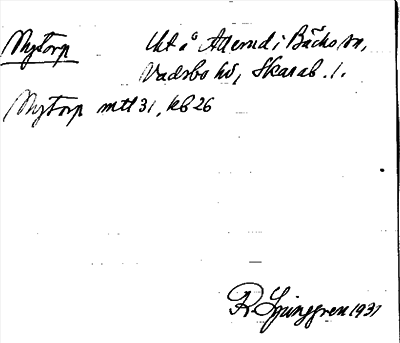 Nytorp lht å Allerud i Bäcks sn,
Vadsbo hd, Skarab. l.
Nytorp mtl 31, kb 26
R Ljunggren 1931